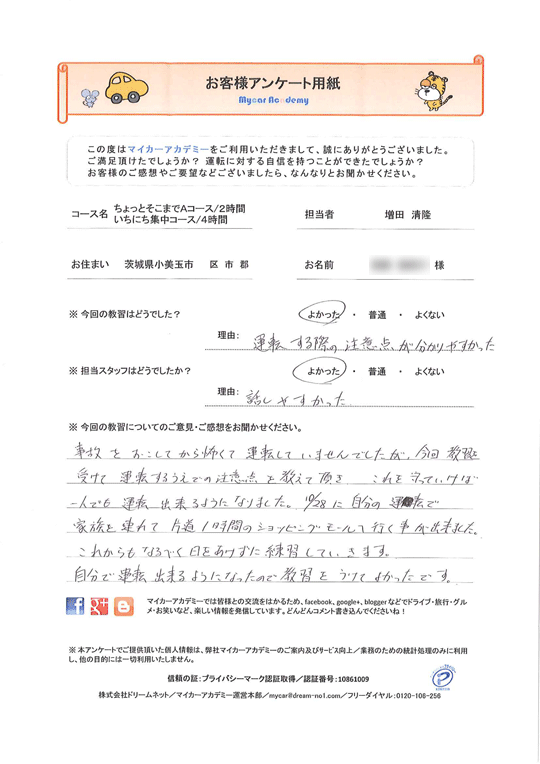 お客様アンケート用紙
Mycar Academy
この度はマイカーアカデミーをご利用いただきまして、誠にありがとうございました。
ご満足頂けたでしょうか? 運転に対する自信を持つことができたでしょうか?
お客様のご感想やご要望などございましたら、なんなりとお聞かせください。
コース名 ちょっとそこまでAコース/2時間 いちにち集中コース/4時間 担当者 増田 清隆
お住まい 茨城県小美玉市 区 市 郡 お名前 様
※ 今回の教習はどうでした? よかった ・ 普通 ・ よくない
理由: 運転する際の注意点が分かりやすかった
※ 担当スタッフはどうでしたか? よかった ・ 普通 ・ よくない
理由: 話しやすかった
※ 今回の教習についてのご意見・ご感想をお聞かせください。
事故をおこしてから怖くて運転していませんでしたが、今回教習を
受けて運転するうえでの注意点を教えて頂き これを守っていけば
一人でも運転出来るようになりました。10/28に自分の運転で
家族を連れて片道1時間のショッピングモールへ行く事が出来ました。
これからもなるべく日をあけずに練習していきます。
自分で運転出来るようになったので教習をうけてよかったです。
マイカーアカデミーでは皆様との交流をはかるため、facebook、google+、bloggerなどでドライブ・旅行・グル
メ・お笑いなど、楽しい情報を発信しています。どんどんコメント書き込んでくださいね!
※ 本アンケートでご提供頂いた個人情報は、弊社マイカーアカデミーのご案内及びサービス向上/業務のための統計処理のみに利用
し、他の目的には一切利用いたしません。
信頼の証:プライバシーマーク認証取得/認証番号:10861009
株式会社ドリームネット/マイカーアカデミー運営本部/mycar@dream-no1.com/フリーダイヤル:0120-108-256